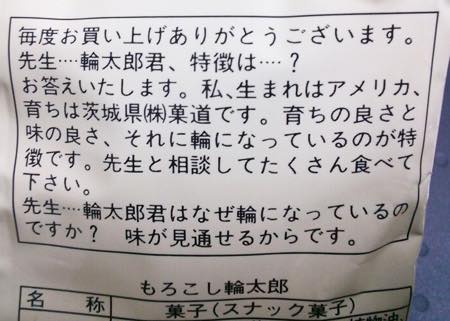 毎度お買い上げありがとうございます。
先生‥‥輪太郎君、特徴は‥‥？
お答えいたします。私、生まれはアメリカ、
育ちは茨城県㈱菓道です。育ちの良さと
味の良さ、それに輪になっているのが特
徴です。先生と相談してたくさん食べて
下さい。
先生‥‥輪太郎君はなぜ輪になっているの
ですか？　味が見通せるからです。
もろこし輪太郎
名　称　菓子(スナック菓子)
植物油、